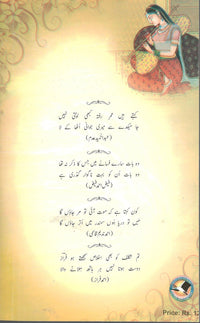 کہتے ہیں عمر رفتہ کبھی لوٹتی نہیں
جا میکدے سے میری جوانی اٹھا کے لا
(عبدالحمید عدم)
وہ بات سارے فسانے میں جس کا ذکر نہ تھا
وہ بات ان کو بہت ناگوار گذری ہے
(فیض احمد فیض)
کون کہتا ہے کہ موت آئی تو مر جاؤں گا
میں تو دریا ہوں سمندر میں اتر جاؤں گا
(احمد ندیم قاسمی)
تم تکلف کو بھی اخلاص سمجھتے ہو فراز
دوست ہوتا نہیں ہر ہاتھ ملانے والا
(احمد فراز)
Price: Rs. 1